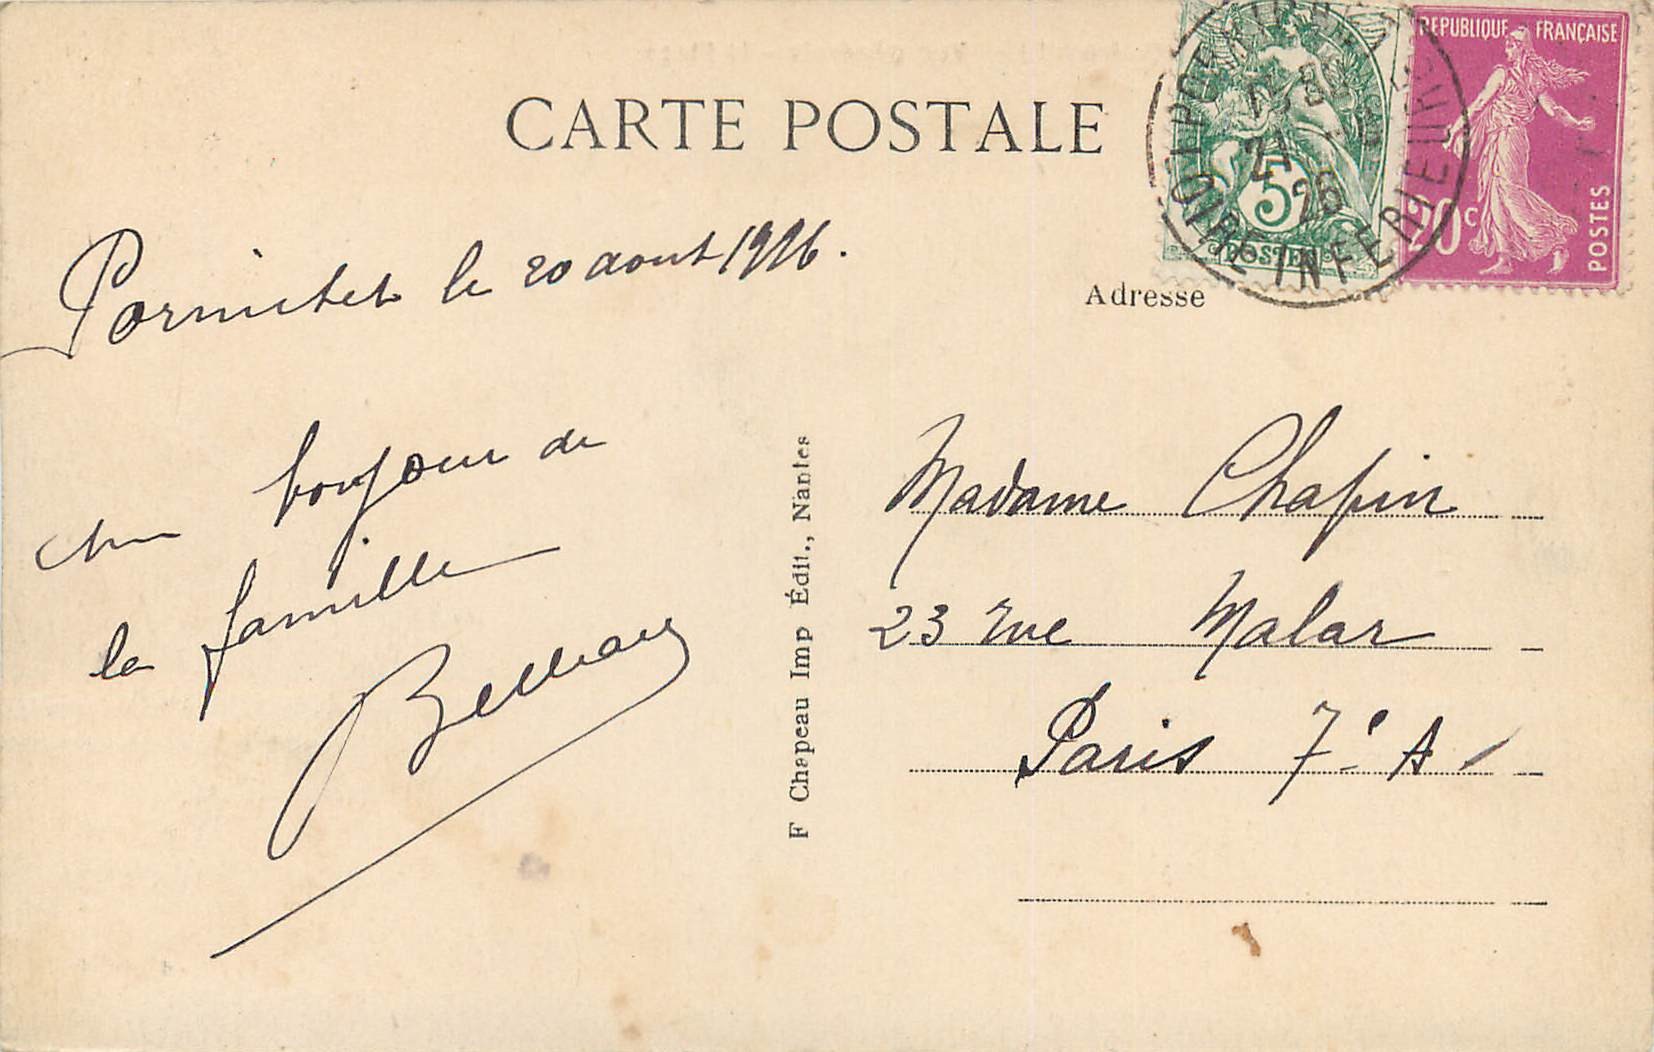 CARTE POSTALE
REPUBLIQUE FRANÇAISE
20c
POSTES
5
POSTES
21
26
LOIRE INFERIEURE
Pornichet le 20 aout 1926.
Adresse
Un bonjour de
la famille
F Chapeau Imp Édit., Nantes
Madame Chapin
23 rue Malar
Paris 7e A